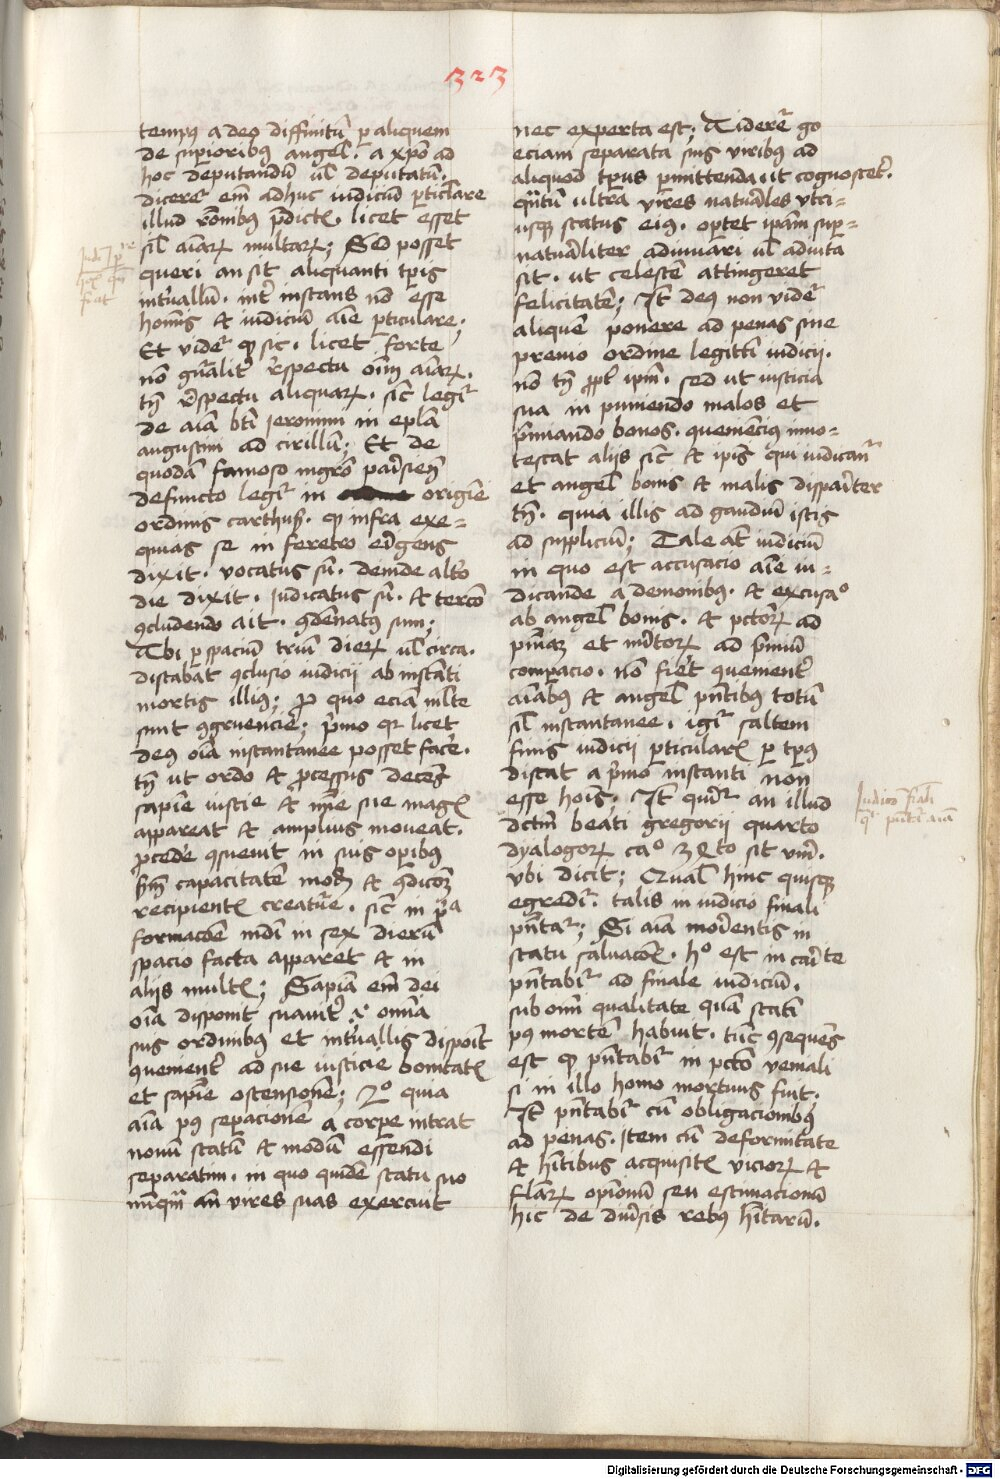 323
tempus adeo diffinitū p aliquem
de superioribus angel. a xpo ad
hoc deputandū ul deputatū.
dicere em adhuc iudiciū perticlare
illud rōnibus predictꝭ. licet esset
sil aīarꝝ multarꝝ; Sed posset
queri an sit aliquanti tpis
intuallū. int instans nō esse
hominis et iudiciū aīe pticulare;
Et videt qꝫ sic. licet forte
nō gnalit respectu oīm aīarꝝ.
tn respectu aliquarꝝ. sic legit
de aīa bti Jeronimi in epla
augustini ad cirillū; Et de
quodā famoso mgro parisien
defuncto legit in origīe
ordinis carthus. qꝫ infra exe=
quias se in feretro erigens
dixit. vocatus sū. deinde alto
die dixit. Judicatus sū. et tercō
ꝯcludendo ait. ꝯdēnatꝰ sum;
Ubi p spaciū triū dierꝝ ul circa.
distabat ꝯclusio iudicii ab instāti
mortis illiꝰ; p quo eciā mlte
sunt ꝯgruencie; primo qr licet
deꝰ oīa instantanee posset facere.
tn ut ordo et pcessus decens
sapie iusticie et mīe sue magꝭ
appareat et amplius moueat.
pcedere ꝯsueuit in suis opibus
scdm capacitatē et ꝯdicōēꝫ
recipientꝭ creature. sic in pma
formacōe mūdi in sex dierū
spacio facta apparet et in
aliis multꝭ; Sapiā em dei
oīa disponit suauit et omnia
suis ordinibus et intuallis disponit
ꝯuenient ad sue iusticie bonitatꝭ
et sapie ostensionē; 2º quia
aīa pꝰ sepacionē a corpe intrat
nouū statū et modū essendi
separatim. in quo quidē statu suo
nūqm an vires suas exercuit
nec experta est; Videre go
eciam separata suis viribus ad
aliquod tpus pmittenda ut cognosceret.
qntū ultra vires naturales utri=
usqꝫ status eiꝰ. oportet ipam sup=
naturaliter adiuuari ul adiuta
sit. ut celestē attingeret
felicitatē; It deꝰ non videt
aliquē ponere ad penas sine
premio ordine legitti iudicii.
nō tn ppt ipm. sed ut iusticia
sua in puniendo malos et
pmiando bonos. ꝯuenienciꝰ inno=
tescat aliis sic et ipis qui iudicant
et angel bonis et malis dispariter
tn. quia illis ad gaudiū istis
ad suppliciū; Tale at iudiciū
in quo est accusacio aīe iu=
dicande a demonibꝰ. et excusaº
ab angel bonis. et pctorꝝ ad
penaꝫ et mitorꝝ ad pmiū
compacio. nō fiet ꝯuenient
aīabus et angel pntibus totū
sil instantanee. igit saltem
finis iudicii pticularꝭ p tpus
distat a pmo instanti non
esse hois. It querit an illud
dctm beati gregorii quarto
dyalogorꝝ caº sit vm.
vbi dicit; Qual hinc quisqꝫ
egredit. talis in iudicio finali
pntat; Si aīa morientis in
statu saluacōꝭ. hº est in caritate
pntabit ad finale iudiciū.
sub omī qualitate quā statī
pꝰ mortē habuit. tūc ꝯsequēs
est qꝫ pntabit in pctō veniali
si in illo homo mortuus fuit.
It pntabit cū obligacionibus
ad penas. Item cū deformitate
et hītibus acquisitꝭ viciorꝝ et
flarꝝ opionū seu estimacionū
hic de diuersis rebus hītarū.